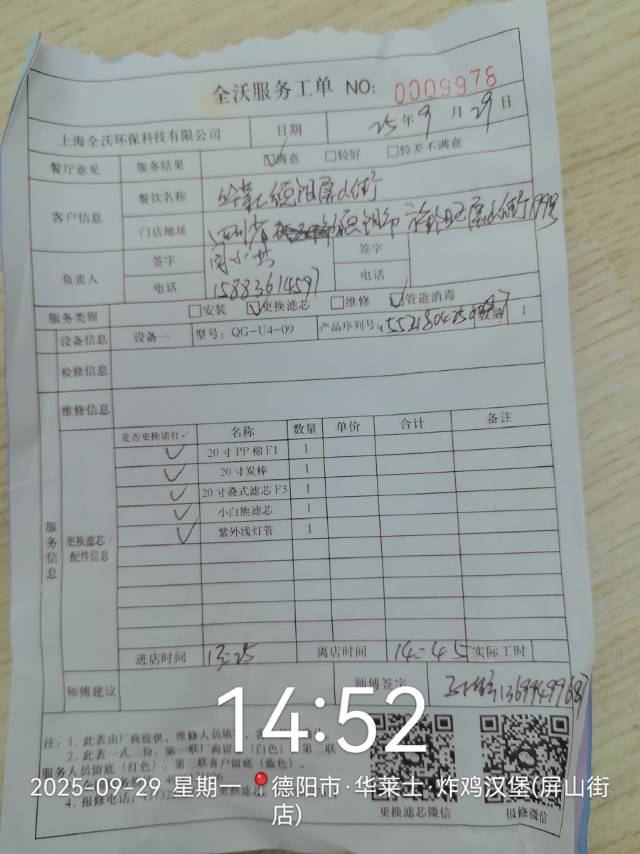 全沃服务工单 NO: 0009978
上海全沃环保科技有限公司 日期 25年9月29日
餐厅意见 服务结果 ☑满意 □较好 □较差不满意
客户信息 餐饮名称 华莱士德阳屏山街
门店地址 四川省 德阳市 旌阳区屏山街199号
负责人 签字 签字
电话 15883614597 电话
服务类别 □安装 ☑更换滤芯 □维修 ☑管道消毒
设备信息 设备一 型号: QG-U4-09 产品序列号: 1
检修信息
维修信息
服务信息 更换滤芯/配件信息
是否更换请打✓ 名称 数量 单价 合计 备注
✓ 20寸PP棉F1 1
✓ 20寸炭棒 1
✓ 20寸叠式滤芯F3 1
✓ 小白熊滤芯 1
✓ 紫外线灯管 1
进店时间 13:25 离店时间 14:45 实际工时
师傅建议 师傅签字 13699499687
14:52
注: 1. 此表由厂商提供, 维修人员填
2. 此表一式三份, 第一联厂商留 (白色) 第二联
服务人员留底 (红色), 第三联客户留底 (蓝色)。
2025-09-29 星期一 德阳市·华莱士·炸鸡汉堡(屏山街店)
4. 报修电话:
更换滤芯微信 报修微信